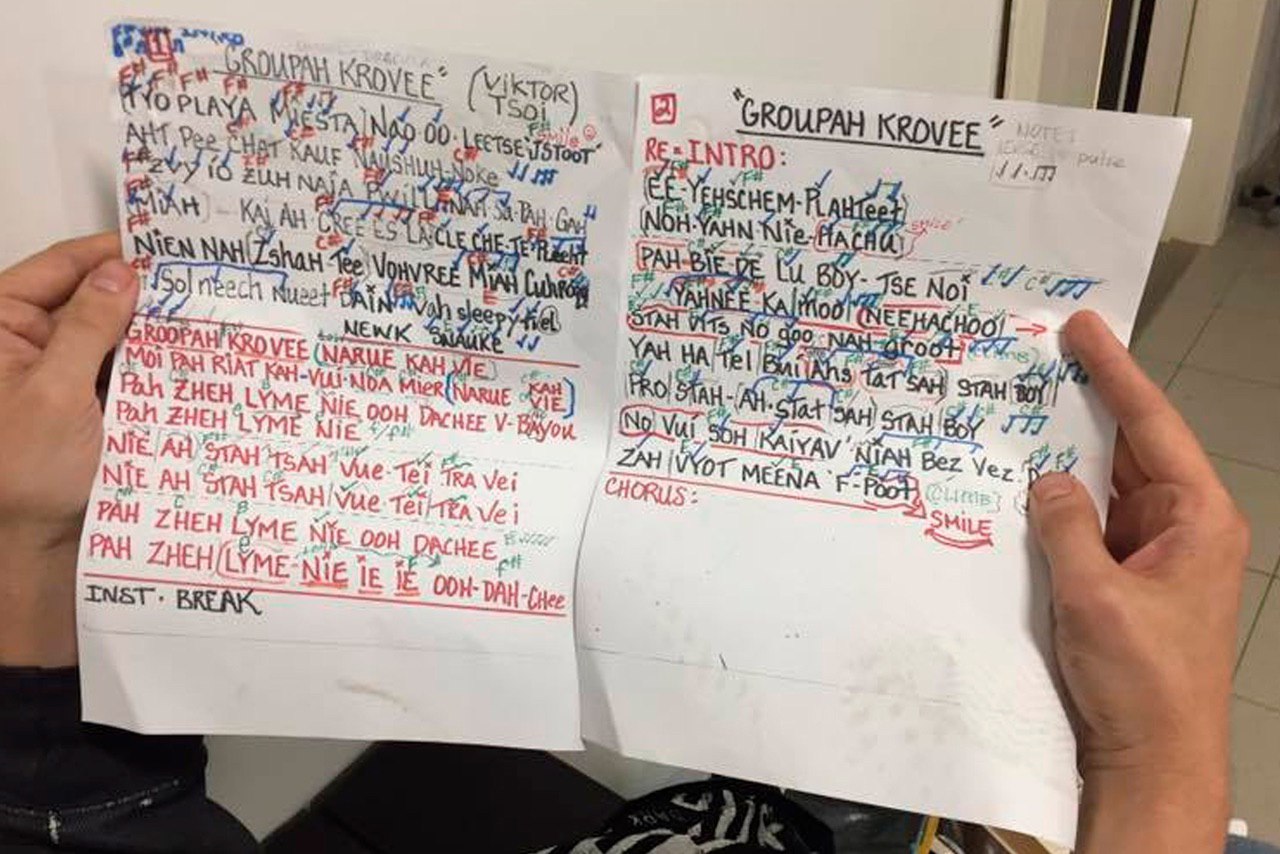 1
"GROUPAH KROVEE" (VIKTOR TSOI)
TYO PLAYA MIESTA NAO OO-LEETSE 'JSTOOT'
AHT Pee CHAT KAUF NAUSHUH-Noke
ZVY IO ZUH NAJA PWILL NAH SA-PAH-GAH
MIAH KAJ AH CREE ES LA CLE CHE-TE
NIEN NAH (ZshaH-Tee) VOHVREE MIAH
Sol neech Nueet DAIN Vah sleepy
NEWK SNAUKE
GROOPAH KROVEE (NARUE KAH VIE)
MOI PAH RIAT KAH-VUI-NOA MIER (NARUE KAH VIE)
Pah ZHEH LYME NIE OOH DACHEE V-BAYOU
Pah ZHEH LYME NIE
NIE AH STAH TSAH VUE-Tei TRA Vei
NIE AH STAH TSAH VUE-Tei TRA Vei
PAH ZHEH LYME NIE OOH DACHEE
PAH ZHEH (LYME-NIE IE IE OOH-DAH-CHee
INST. BREAK
2
"GROUPAH KROVEE"
NOTE: pulse
RE-INTRO:
(EE-YEHSCHEM-PLAHTeet)
(NOH-YAHN Nie-HACHU) SMILE
PAH-BIE-DE LU BOY-TSE NOI
YAHNEE-Ka/moo/(NEEHACHOO) →
STAH VITS NO goo NAH groot (CLIMB)
YAH HA Tel Bui Ahs TAT SAH STAH BOY
PRO STAH-(AH-STAT SAH) STAH BOY
NO VUI SOH KAIYAV' NIAH Bez Vez
ZAH VYOT MEENA F-POOT (CLIMB)
CHORUS:
SMILE